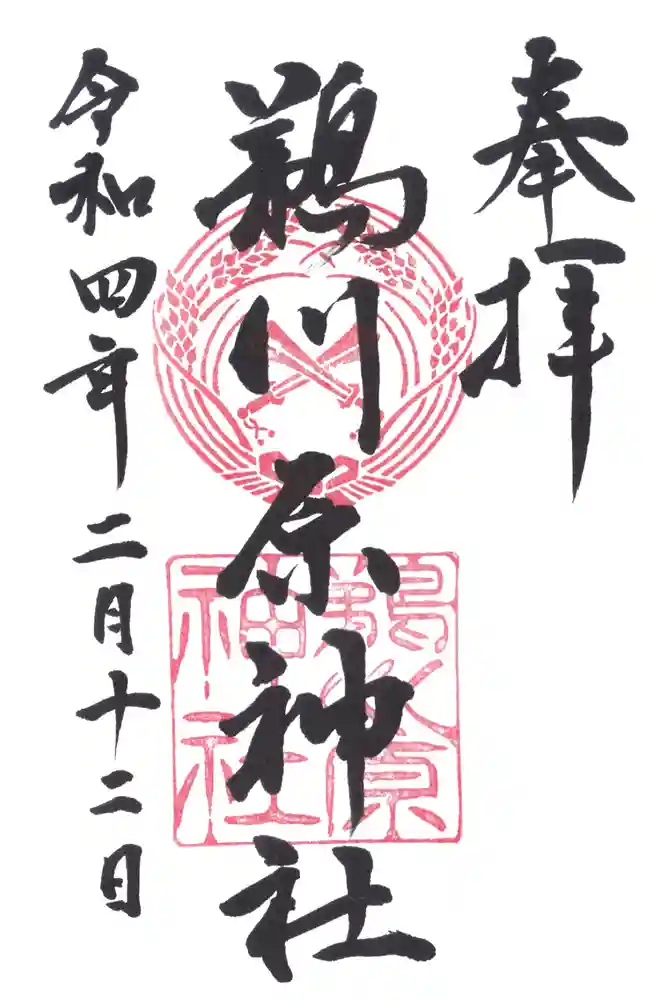 奉拝
鵜川原神社
鵜川原
神社
令和四年二月十二日